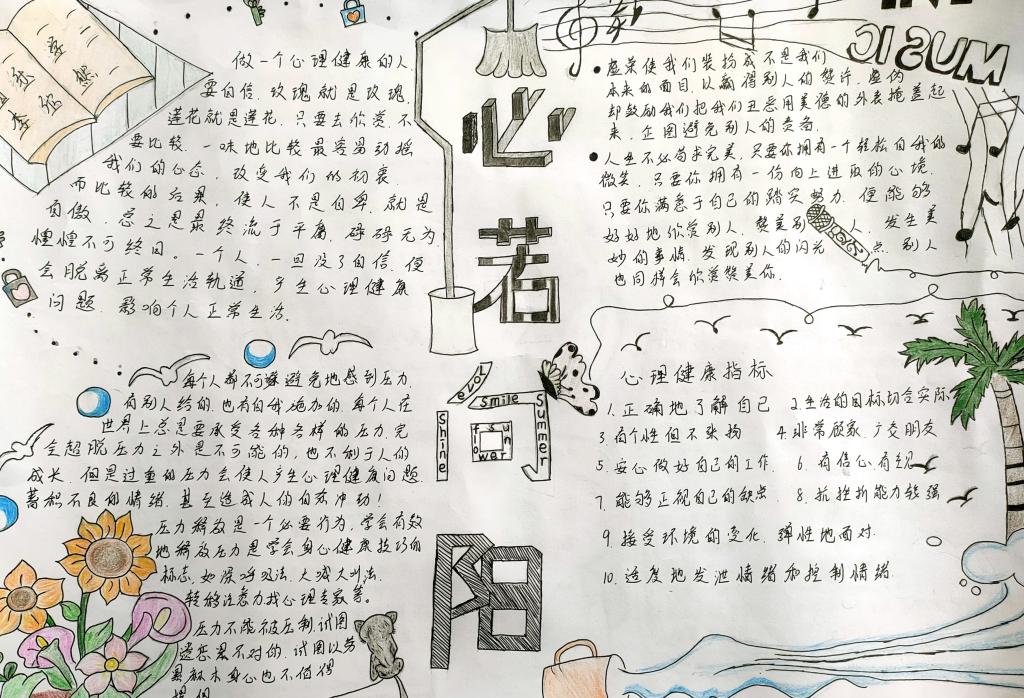 做一个心理健康的人
要自信.玫瑰就是玫瑰,
莲花就是莲花.只要去欣赏.不
要比较.一味地比较最容易动摇
我们的心态.改变我们的初衷.
而比较的后果,使人不是自卑.就是
自傲.总之是最终流于平庸.碌碌无为.
惶惶不可终日。一个人,一旦没了自信.便
会脱离正常生活轨道,产生心理健康
问题.影响个人正常生活.
每个人都不可
避免地感到压力.
有别人给的.也有自我施加的.每个人在
世界上总是要承受各种各样的压力.完
全超脱压力之外是不可能的,也不利于人的
成长.但是过重的压力会使人产生心理健康问题.
蓄积不良的情绪.甚至造成人们自杀冲动!
压力释放是一个必要行为,学会有效
地释放压力是学会身心健康技巧的
标志,如深呼吸法.大喊大叫法.
转移注意力找心理专家等。
压力不能被压制.试图
逃避是不对的.试图以劳
累麻木身心也不值得
提倡
心若向阳
LOVE
Smile
Summer
Shine
sun
flower
MUSIC
虚荣使我们装扮成不是我们
本来的面目.以赢得别人的赞许.虚伪
却鼓励我们把我们丑恶用美德的外表掩盖起
来.企图避免别人的责备.
人生不必苛求完美.只要你拥有一个轻松自我的
微笑.只要你拥有一份向上进取的心境.
只要你满意于自己的踏实努力.便能够
好好地欣赏别人.赞美别人,发生美
妙的事情.发现别人的闪光点.别人
也同样会欣赏赞美你.
心理健康指标
1.正确地了解自己 2.生活的目标切合实际
3.有个性但不张扬 4.非常顾家.广交朋友
5.安心做好自己的工作. 6.有信心.有主见
7.能够正视自己的缺点 8.抗挫折能力较强
9.接受环境的变化.弹性地面对.
10.适度地发泄情绪和控制情绪